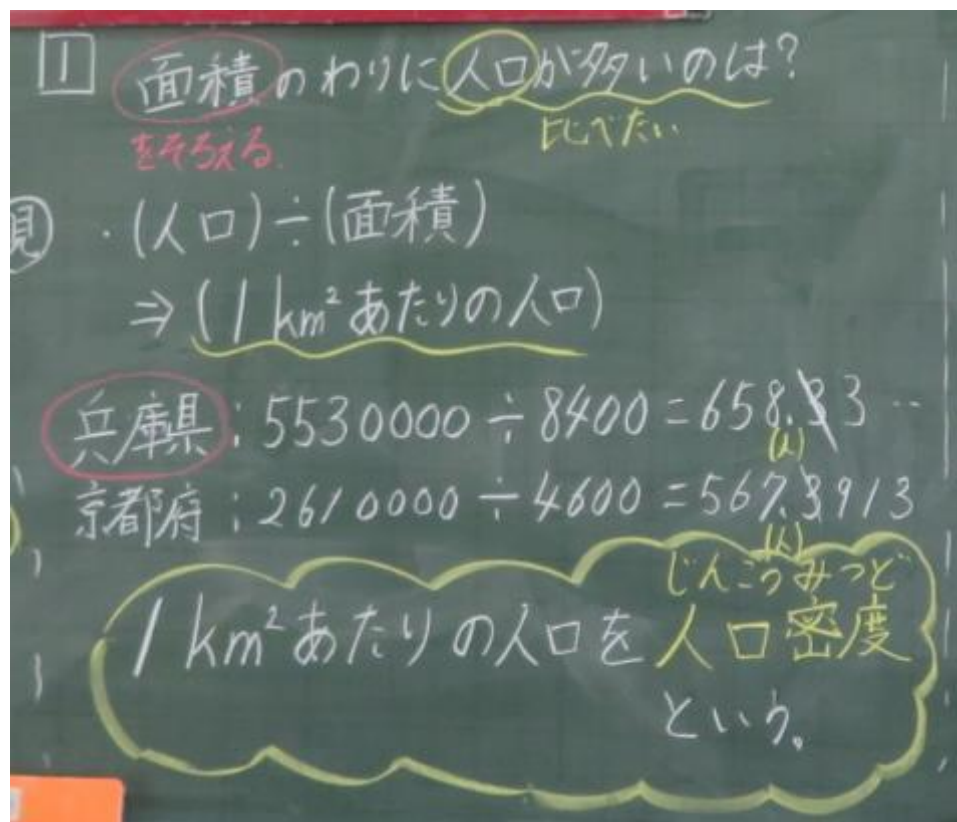 1 面積のわりに人口が多いのは?
をそろえる。 比べたい
見 ・(人口)÷(面積)
⇒(1km²あたりの人口)
兵庫県:5530000÷8400=658.33…
(人)
京都府:2610000÷4600=567.3913
(人)
じんこうみつど
1km²あたりの人口を人口密度
という。